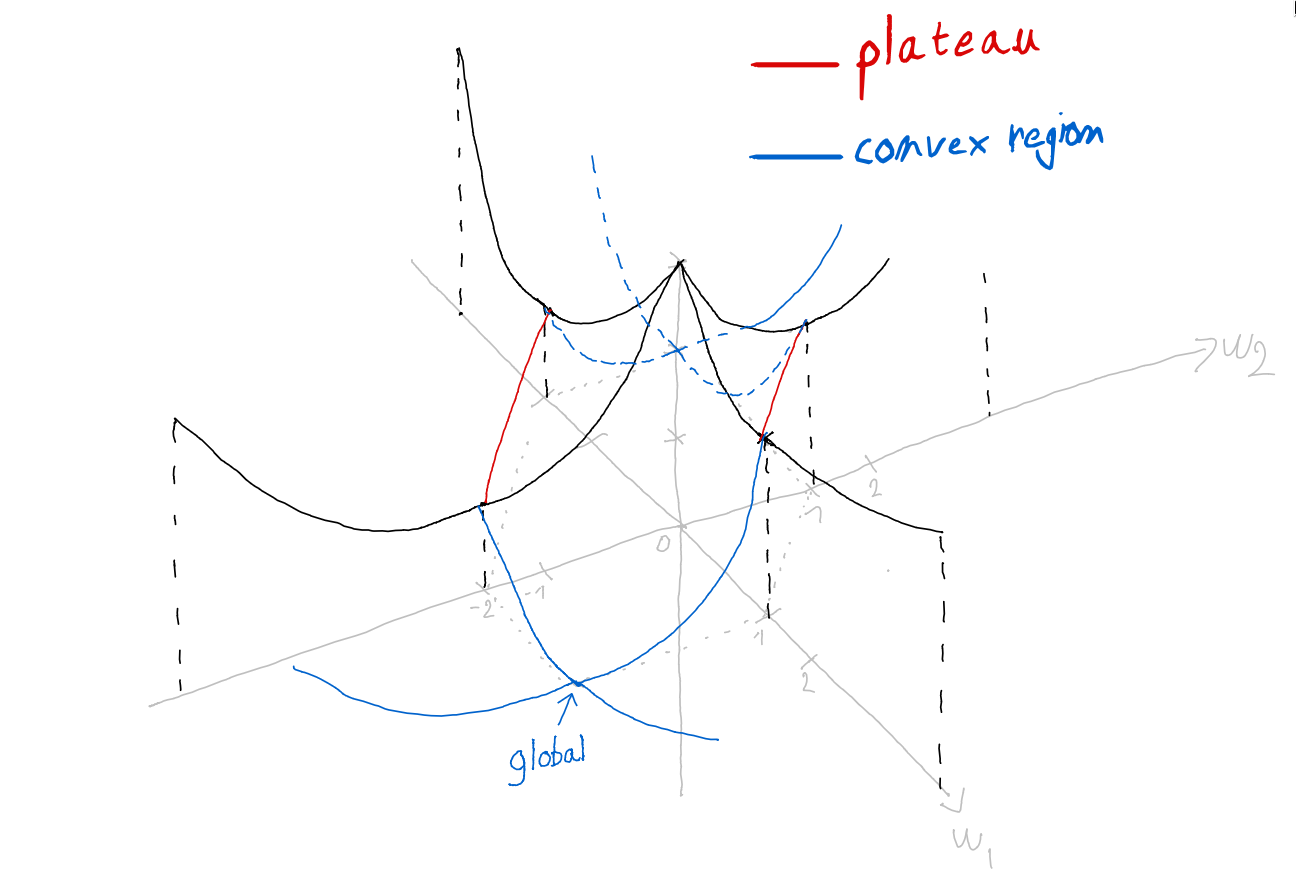 plateau
convex region
w2
2
1
0
-1
-2
1
2
global
w1